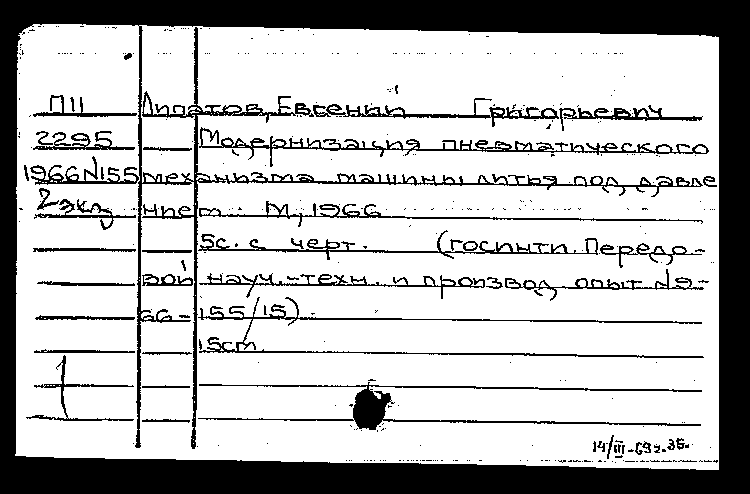 П11 Липатов, Евгений Григорьевич
2295 Модернизация пневматического
1966N155 механизма машины литья под давле
2 экз нием. М, 1966
5с. с черт. (ГОСИНТИ. Передо-
вой науч.-техн. и производ. опыт №9-
66-155/15).
15ст.
14/III-69г.